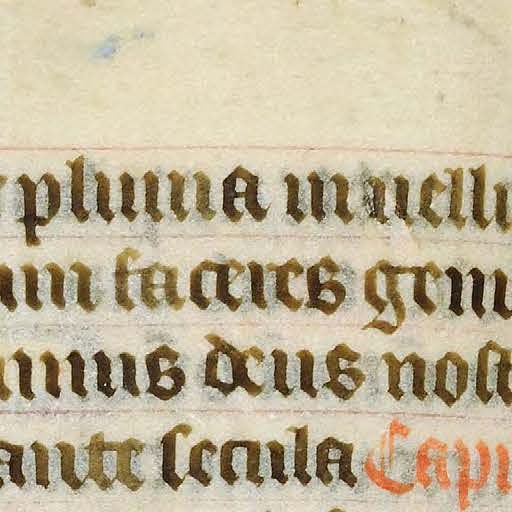 pluuia in uell
um faceres gem
minus deus nost
ante secula Capi